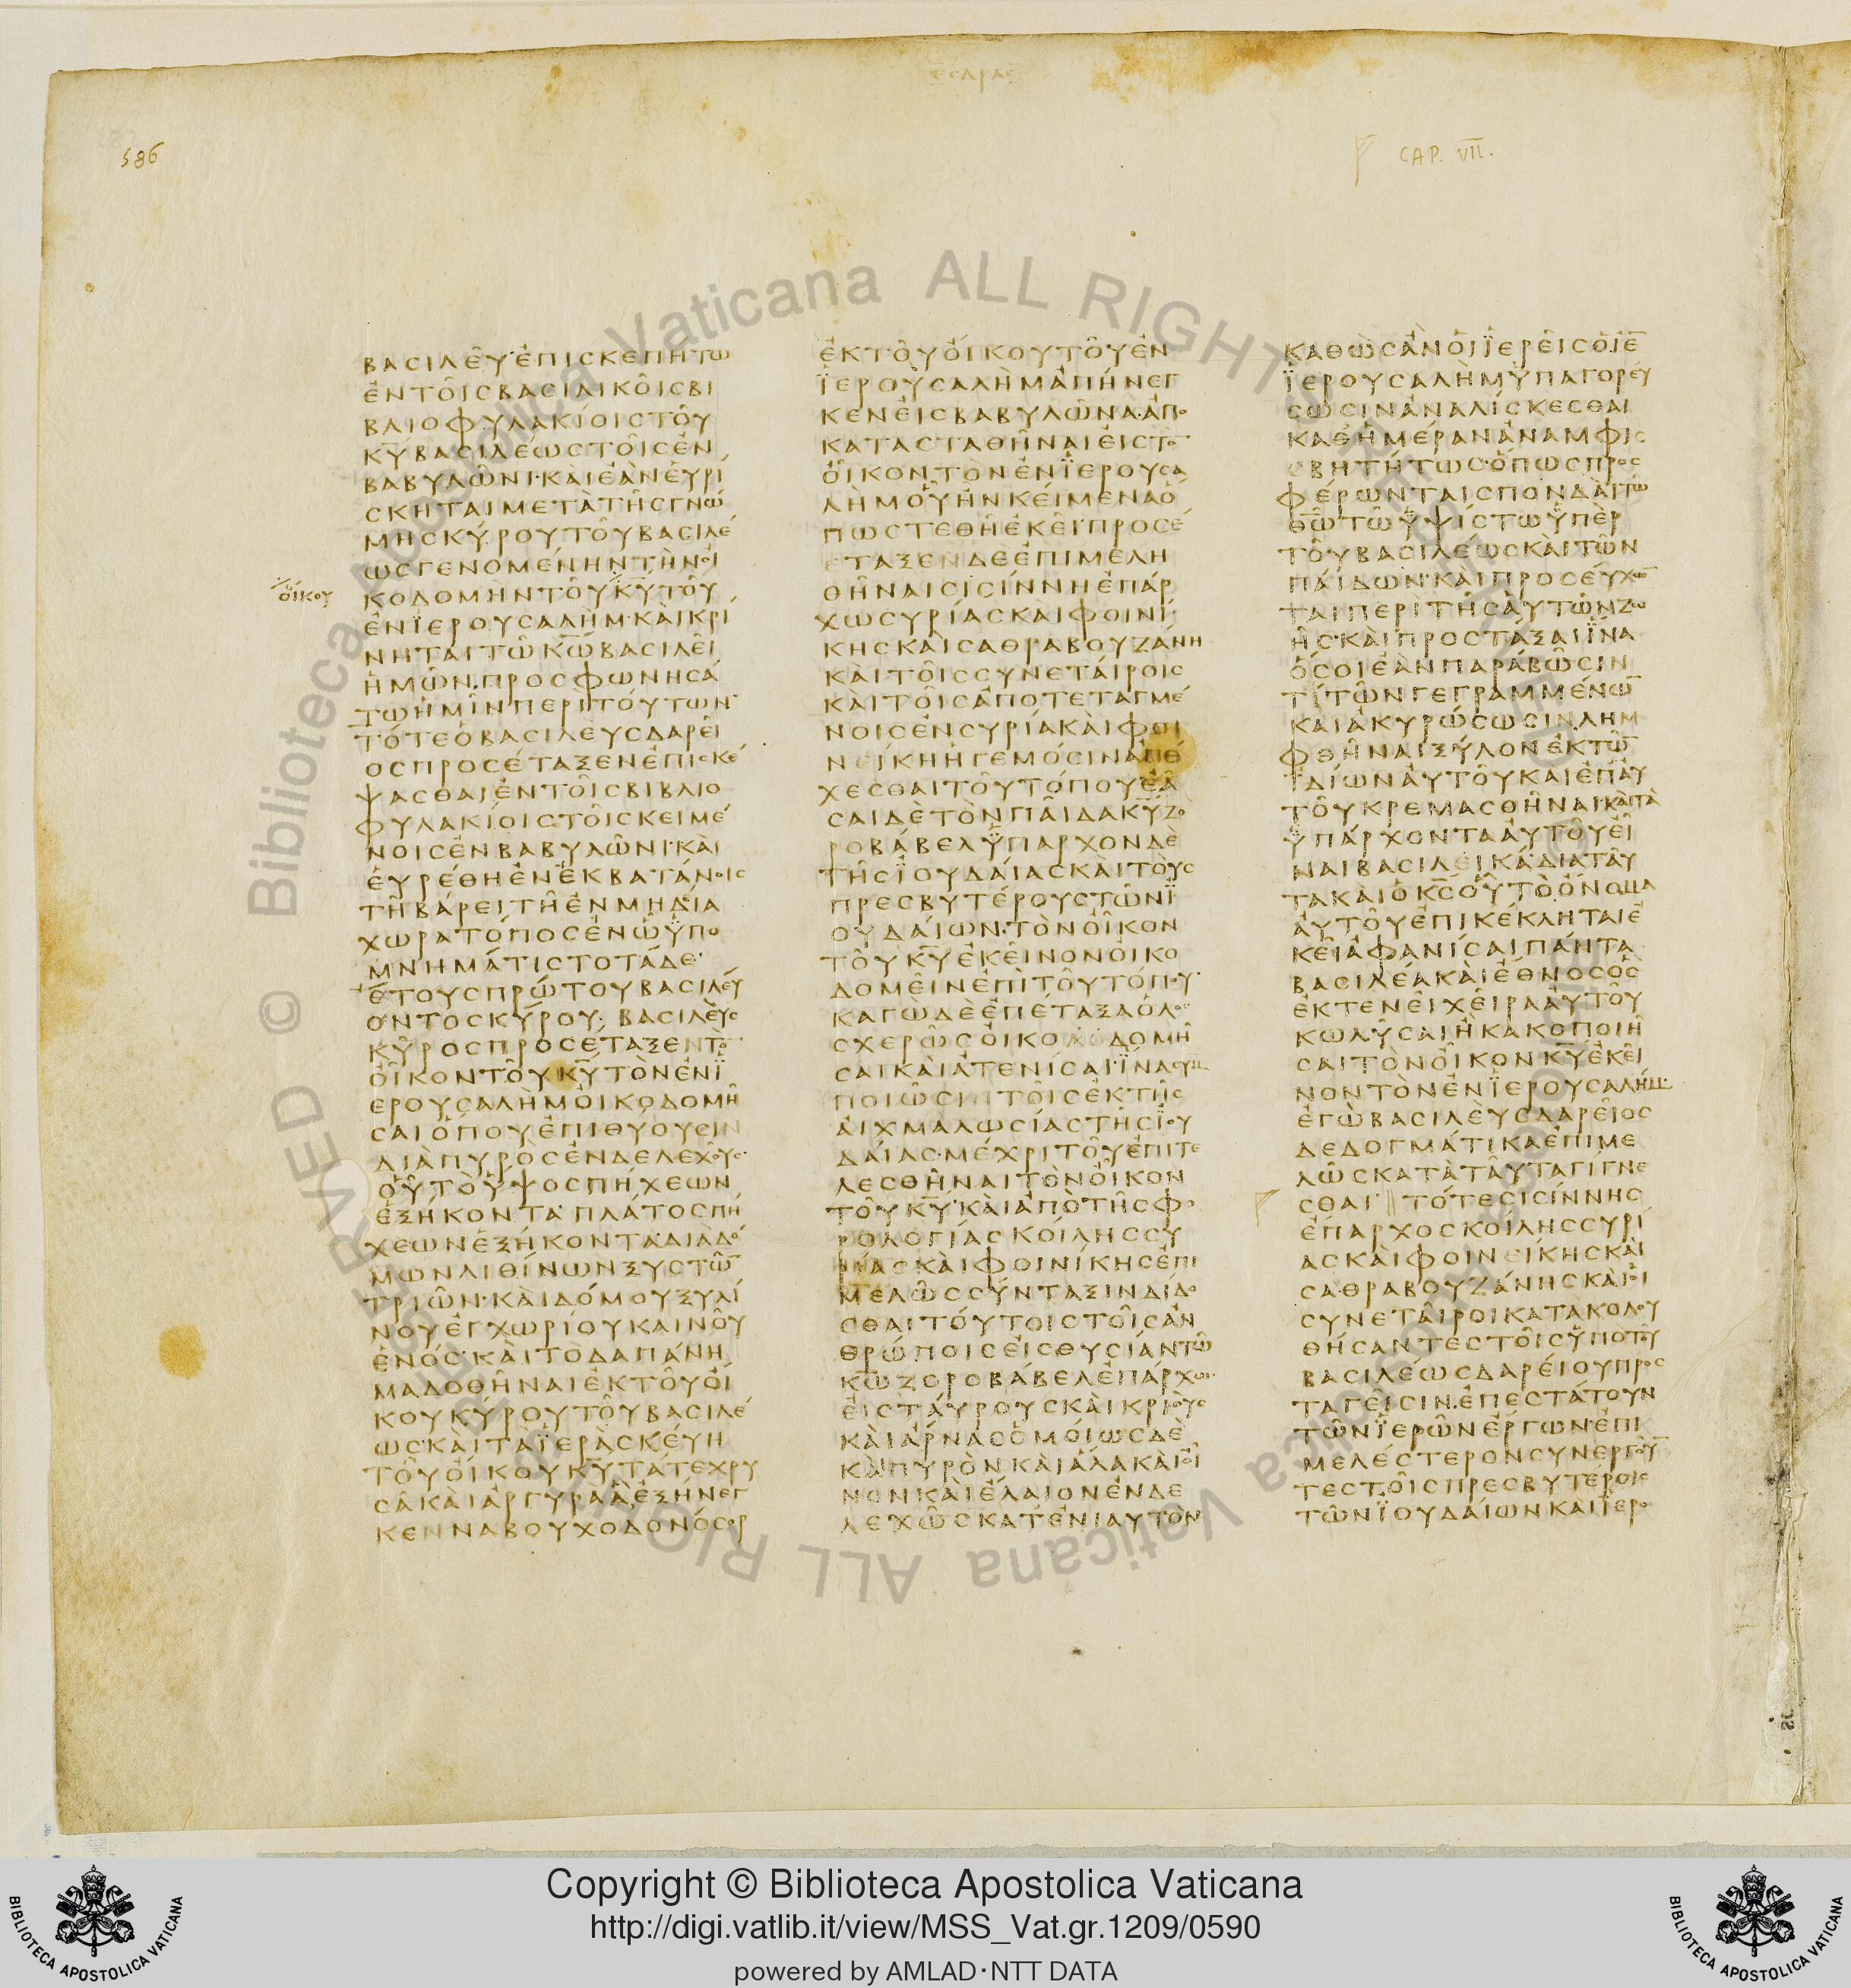 εσδρας
586
CAP. VII.
ΒΑΣΙΛΕΥ ΕΠΙΣΚΕΠΗΤΩ
ΕΝΤΟΙΣΒΑΣΙΛΙΚΟΙΣΒΙ
ΒΛΙΟΦΥΛΑΚΙΟΙΣΤΟΥ
ΚΥΒΑΣΙΛΕΩΣΤΟΙΣΕΝ
ΒΑΒΥΛΩΝΙ·ΚΑΙΕΑΝΕΥΡΙ
ΣΚΗΤΑΙΜΕΤΑΤΗΣΓΝΩ
ΜΗΣΚΥΡΟΥΤΟΥΒΑΣΙΛΕ
ΩΣΓΕΝΟΜΕΝΗΝΤΗΝΟΙ
οίκου
ΚΟΔΟΜΗΝΤΟΥΚΥΤΟΥ
ΕΝΪΕΡΟΥΣΑΛΗΜ·ΚΑΙΚΡΙ
ΝΗΤΑΙΤΩΚΩΒΑΣΙΛΕΙ
ΗΜΩΝ·ΠΡΟΣΦΩΝΗΣΑ
ΤΩΗΜΙΝΠΕΡΙΤΟΥΤΩΝ
ΤΟΤΕΟΒΑΣΙΛΕΥΣΔΑΡΕΙ
ΟΣΠΡΟΣΕΤΑΞΕΝΕΠΙΣΚΕ
ΨΑΣΘΑΙΕΝΤΟΙΣΒΙΒΛΙΟ
ΦΥΛΑΚΙΟΙΣΤΟΙΣΚΕΙΜΕ
ΝΟΙΣΕΝΒΑΒΥΛΩΝΙ·ΚΑΙ
ΕΥΡΕΘΗΕΝΕΚΒΑΤΑΝΟΙΣ
ΤΗΒΑΡΕΙΤΗΕΝΜΗΔΙΑ
ΧΩΡΑΤΟΠΟΣΕΝΩΫΠΟ
ΜΝΗΜΑΤΙΣΤΟΤΑΔΕ·
ΕΤΟΥΣΠΡΩΤΟΥΒΑΣΙΛΕΥ
ΟΝΤΟΣΚΥΡΟΥ· ΒΑΣΙΛΕΥΣ
ΚΥΡΟΣΠΡΟΣΕΤΑΞΕΝΤΟ̅
ΟΙΚΟΝΤΟΥΚΥΤΟΝΕΝΪ
ΕΡΟΥΣΑΛΗΜΟΙΚΟΔΟΜΗ
ΣΑΙΟΠΟΥΕΠΙΘΥΟΥΣΙΝ
ΔΙΑΠΥΡΟΣΕΝΔΕΛΕΧΟΥΣ·
ΟΥΤΟΫΨΟΣΠΗΧΕΩΝ
ΕΞΗΚΟΝΤΑ·ΠΛΑΤΟΣΠΗ
ΧΕΩΝΕΞΗΚΟΝΤΑ·ΔΙΑΔΟ
ΜΩΝΛΙΘΙΝΩΝΞΥΣΤΩ̅
ΤΡΙΩΝ·ΚΑΙΔΟΜΟΥΞΥΛΙ
ΝΟΥΕΓΧΩΡΙΟΥΚΑΙΝΟΥ
ΕΝΟΣ·ΚΑΙΤΟΔΑΠΑΝΗ
ΜΑΔΟΘΗΝΑΙΕΚΤΟΥΟΙ
ΚΟΥΚΥΡΟΥΤΟΥΒΑΣΙΛΕ
ΩΣ·ΚΑΙΤΑΪΕΡΑΣΚΕΥΗ
ΤΟΥΟΙΚΟΥΚΥΤΑΤΕΧΡΥ
ΣΑΚΑΙΑΡΓΥΡΑΑΕΞΗΝΕΓ
ΚΕΝΝΑΒΟΥΧΟΔΟΝΟΣΟΡ
ΕΚΤΟΥΟΙΚΟΥΤΟΥΕΝ
ΪΕΡΟΥΣΑΛΗΜΑΠΗΝΕΓ
ΚΕΝΕΙΣΒΑΒΥΛΩΝΑ·ΑΠΟ
ΚΑΤΑΣΤΑΘΗΝΑΙΕΙΣΤΟ̅
ΟΙΚΟΝΤΟΝΕΝΪΕΡΟΥΣΑ
ΛΗΜΟΥΗΝΚΕΙΜΕΝΑΟ
ΠΩΣΤΕΘΗΕΚΕΙ·ΠΡΟΣΕ
ΤΑΞΕΝΔΕΕΠΙΜΕΛΗ
ΘΗΝΑΙΣΙΣΙΝΝΗΕΠΑΡ
ΧΩΣΥΡΙΑΣΚΑΙΦΟΙΝΙ
ΚΗΣΚΑΙΣΑΘΡΑΒΟΥΖΑΝΗ
ΚΑΙΤΟΙΣΣΥΝΕΤΑΙΡΟΙΣ
ΚΑΙΤΟΙΣΑΠΟΤΕΤΑΓΜΕ
ΝΟΙΣΕΝΣΥΡΙΑΚΑΙΦΟΙ
ΝΕΙΚΗΗΓΕΜΟΣΙΝΑΠΕ
ΧΕΣΘΑΙΤΟΥΤΟΠΟΥΕΑ
ΣΑΙΔΕΤΟΝΠΑΙΔΑΚΥΖΟ
ΡΟΒΑΒΕΛΫΠΑΡΧΟΝΔΕ
ΤΗΣΪΟΥΔΑΙΑΣΚΑΙΤΟΥΣ
ΠΡΕΣΒΥΤΕΡΟΥΣΤΩΝΪ
ΟΥΔΑΙΩΝ·ΤΟΝΟΙΚΟΝ
ΤΟΥΚΥΕΚΕΙΝΟΝΟΙΚΟ
ΔΟΜΕΙΝΕΠΙΤΟΥΤΟΠΟΥ·
ΚΑΓΩΔΕΕΠΕΤΑΞΑΟΛΟ
ΣΧΕΡΩΣΟΙΚΟΔΟΜΗ
ΣΑΙΚΑΙΑΤΕΝΙΣΑΙ·ΪΝΑΣΥΜ
ΠΟΙΩΣΙΝΤΟΙΣΕΚΤΗΣ
ΑΙΧΜΑΛΩΣΙΑΣΤΗΣΪΟΥ
ΔΑΙΑΣ·ΜΕΧΡΙΤΟΥΕΠΙΤΕ
ΛΕΣΘΗΝΑΙΤΟΝΟΙΚΟΝ
ΤΟΥΚΥ·ΚΑΙΑΠΟΤΗΣΦΟ
ΡΟΛΟΓΙΑΣΚΟΙΛΗΣΣΥ
ΡΙΑΣΚΑΙΦΟΙΝΙΚΗΣΕΠΙ
ΜΕΛΩΣΣΥΝΤΑΞΙΝΔΙΔΟ
ΣΘΑΙΤΟΥΤΟΙΣΤΟΙΣΑΝ
ΘΡΩΠΟΙΣΕΙΣΘΥΣΙΑΝΤΩ
ΚΩΖΟΡΟΒΑΒΕΛΕΠΑΡΧΩ·
ΕΙΣΤΑΥΡΟΥΣΚΑΙΚΡΙΟΥΣ
ΚΑΙΑΡΝΑΣΟΜΟΙΩΣΔΕ
ΚΑΙΠΥΡΟΝΚΑΙΑΛΑΚΑΙΟΙ
ΝΟΝΚΑΙΕΛΑΙΟΝΕΝΔΕ
ΛΕΧΩΣΚΑΤΕΝΙΑΥΤΟΝ
ΚΑΘΩΣΑΝΟΙΪΕΡΕΙΣΟΙΕ̅
ΪΕΡΟΥΣΑΛΗΜΫΠΑΓΟΡΕΥ
ΣΩΣΙΝΑΝΑΛΙΣΚΕΣΘΑΙ
ΚΑΘΗΜΕΡΑΝΑΝΑΜΦΙΣ
ΒΗΤΗΤΩΣ·ΟΠΩΣΠΡΟΣ
ΦΕΡΩΝΤΑΙΣΠΟΝΔΑΙΤΩ
ΘΩΤΩΫΨΙΣΤΩΫΠΕΡ
ΤΟΥΒΑΣΙΛΕΩΣΚΑΙΤΩΝ
ΠΑΙΔΩΝ·ΚΑΙΠΡΟΣΕΥΧΩ̅
ΤΑΙΠΕΡΙΤΗΣΑΥΤΩΝΖΩ
ΗΣ·ΚΑΙΠΡΟΣΤΑΞΑΙΪΝΑ
ΟΣΟΙΕΑΝΠΑΡΑΒΩΣΙΝ
ΤΙΤΩΝΓΕΓΡΑΜΜΕΝΩ̅
ΚΑΙΑΚΥΡΩΣΩΣΙΝΛΗΜ
ΦΘΗΝΑΙΞΥΛΟΝΕΚΤΩ̅
ΪΔΙΩΝΑΥΤΟΥΚΑΙΕΠΑΥ
ΤΟΥΚΡΕΜΑΣΘΗΝΑΙ·ΚΑΙΤΑ
ΫΠΑΡΧΟΝΤΑΑΥΤΟΥΕΙ
ΝΑΙΒΑΣΙΛΕΙΚΑ·ΔΙΑΤΑΥ
ΤΑΚΑΙΟΚΣΟΥΤΟΟΝΟΜΑ
ΑΥΤΟΥΕΠΙΚΕΚΛΗΤΑΙΕ
ΚΕΙΑΦΑΝΙΣΑΙΠΑΝΤΑ
ΒΑΣΙΛΕΑΚΑΙΕΘΝΟΣΟΣ
ΕΚΤΕΝΕΙΧΕΙΡΑΑΥΤΟΥ
ΚΩΛΥΣΑΙΗΚΑΚΟΠΟΙΗ
ΣΑΙΤΟΝΟΙΚΟΝΚΥΕΚΕΙ
ΝΟΝΤΟΝΕΝΪΕΡΟΥΣΑΛΗΜ·
ΕΓΩΒΑΣΙΛΕΥΣΔΑΡΕΙΟΣ
ΔΕΔΟΓΜΑΤΙΚΑΕΠΙΜΕ
ΛΩΣΚΑΤΑΤΑΥΤΑΓΙΓΝΕ
ΣΘΑΙ· ΤΟΤΕΣΙΣΙΝΝΗΣ
ΕΠΑΡΧΟΣΚΟΙΛΗΣΣΥΡΙ
ΑΣΚΑΙΦΟΙΝΕΙΚΗΣΚΑΙ
ΣΑΘΡΑΒΟΥΖΑΝΗΣΚΑΙΟΙ
ΣΥΝΕΤΑΙΡΟΙΚΑΤΑΚΟΛΟΥ
ΘΗΣΑΝΤΕΣΤΟΙΣΫΠΟΤΟΥ
ΒΑΣΙΛΕΩΣΔΑΡΕΙΟΥΠΡΟΣ
ΤΑΓΕΙΣΙΝ·ΕΠΕΣΤΑΤΟΥΝ
ΤΩΝΪΕΡΩΝΕΡΓΩΝ·ΕΠΙ
ΜΕΛΕΣΤΕΡΟΝΣΥΝΕΡΓΟΥ̅
ΤΕΣΤΟΙΣΠΡΕΣΒΥΤΕΡΟΙΣ
ΤΩΝΪΟΥΔΑΙΩΝΚΑΙΪΕΡΟ
Copyright © Biblioteca Apostolica Vaticana
http://digi.vatlib.it/view/MSS_Vat.gr.1209/0590
powered by AMLAD·NTT DATA
BIBLIOTECA APOSTOLICA VATICANA
BIBLIOTECA APOSTOLICA VATICANA
© Biblioteca Apostolica Vaticana ALL RIGHTS RESERVED